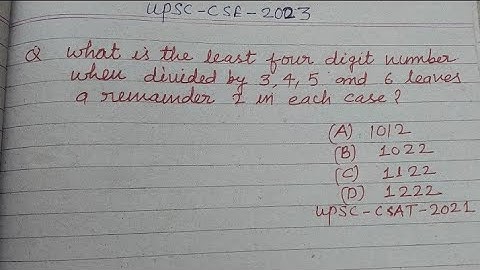 UPSC-CSE-2023
Q what is the least four digit number
when divided by 3, 4, 5 and 6 leaves
a remainder 2 in each case?
(A) 1012
(B) 1022
(C) 1122
(D) 1222
UPSC-CSAT-2021